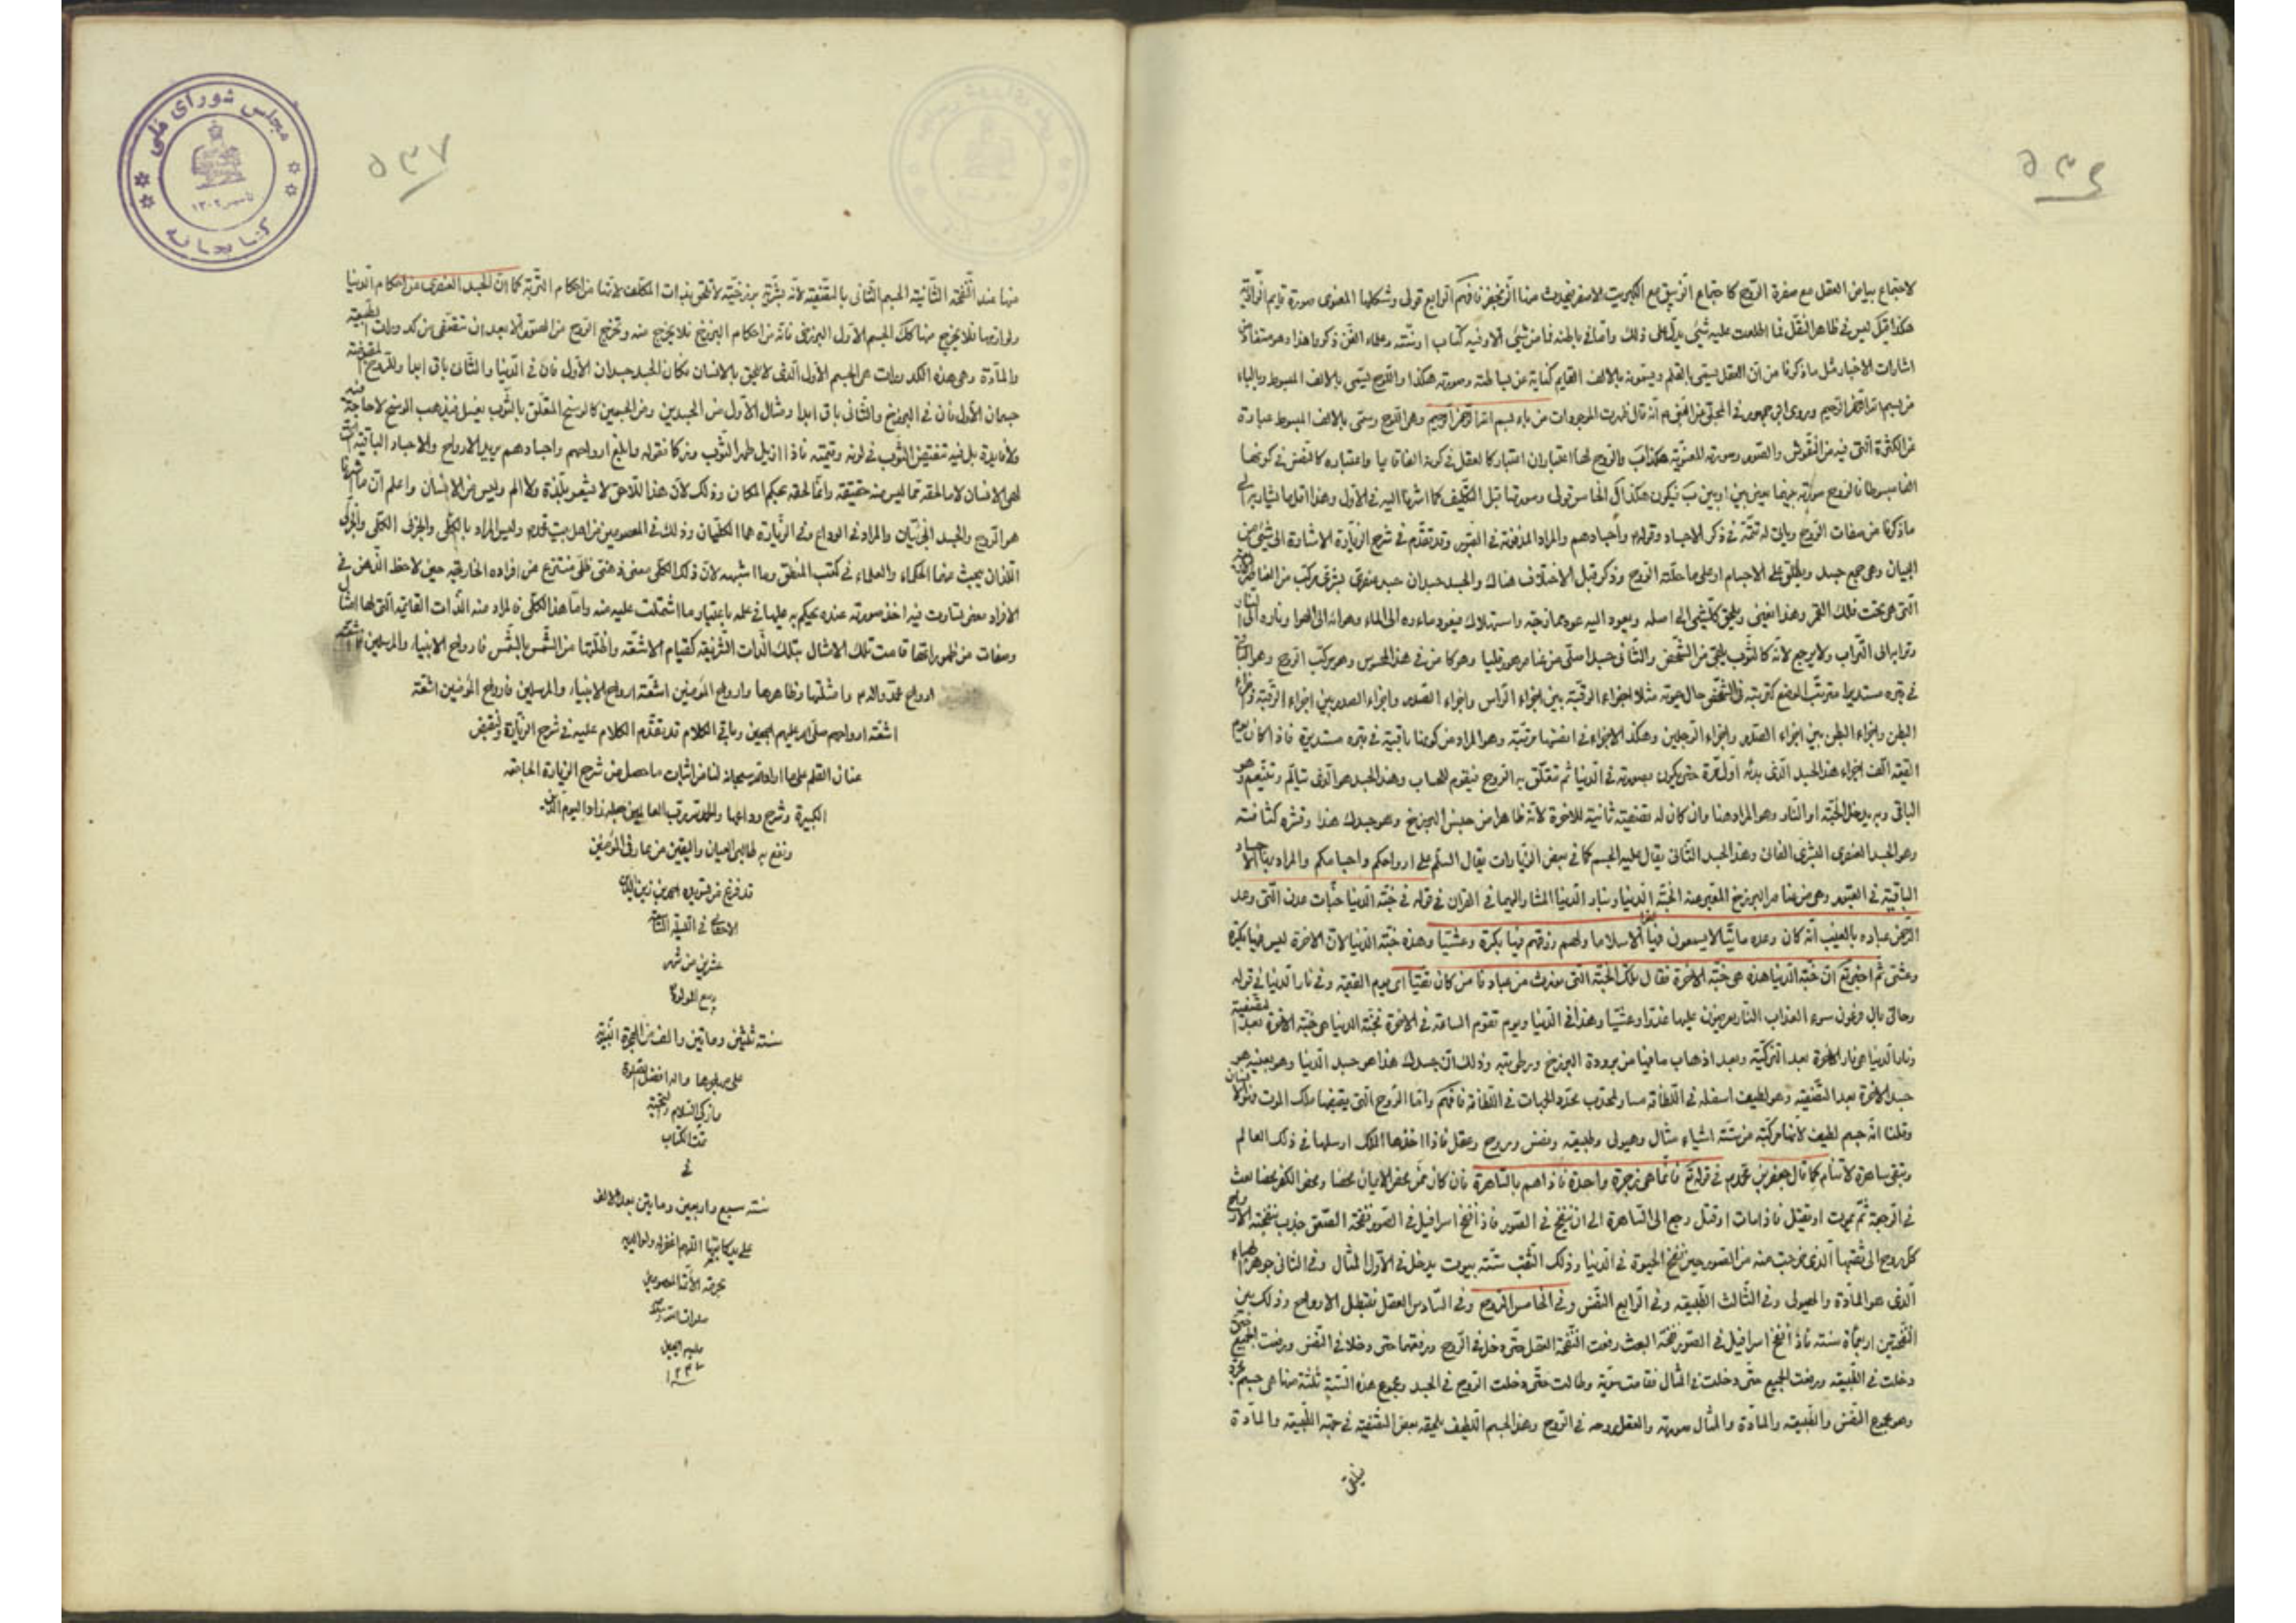 ٥٣٦
لاجتماع بياض العقل مع صفرة الروح كاجتماع الزيبق مع الكبريت الاصفر فيحدث منها الزنجفر فافهم الرابع قولى وشكلها المعنوى صورة
هكذا قيل ليس فى ظاهر النقل فما اطلعت عليه شئ يدل على ذلك واما فى باطنه فما من شئ الا وفيه كتاب او سنة وعلماء الفن ذكروا هذا وهو مستفاد من
اشارات الاخبار مثل ما ذكرنا من ان العقل يسمى بالقلم ويسمونه بالالف القايم كناية عن بساطته وصورته هكذا ا والروح يسمى بالالف المبسوط وبالباء
من بسم الله الرحمن الرحيم وروى ابن جمهور فى المجلى عن النبى انه قال ظهرت الموجودات من باء بسم الله الرحمن الرحيم وهى الروح وسمى بالالف المبسوط عبارة
عن الكثرة التى فيه من النقوش والصور وصورته المعنوية هكذا ب والروح لها اعتباران اعتبار كالعقل فى كونه الفا قايما واعتباره كالنفس فى كونها
ما ذكرنا من صفات الروح وياتى له تتمة فى ذكر الاجساد وقوله واجسادهم والمراد المدفونة فى القبور وقد تقدم فى شرح الزيارة الاشارة الى شئ من
البيان وهى جمع جسد ويطلق على الاجسام او على ما حلته الروح وذكر قبل الاختلاف هناك والجسد جسدان جسد عنصرى بشرى مركب من العناصر
التى هى تحت فلك القمر وهذا يفنى ويلحق كل شئ الى اصله ويعود اليه عود ممازجة واستهلاك فيعود ماءه الى الماء وهواءه الى الهواء وناره الى النار
وترابه الى التراب ولا يرجع لانه كالثوب يلقى من الشخص والثانى جسد اصلى من عناصر هورقليا وهو كامن فى هذا المحسوس وهو مركب الروح وهو
فى قبره مستديرا مترتب الموضع كترتبه فى الشخص حال حيوته مثلا اجزاء الرقبة بين اجزاء الراس واجزاء الصدر واجزاء الصدر بين اجزاء الرقبة واجزاء
البطن واجزاء البطن بين اجزاء الصدر واجزاء الرجلين وهكذا الاجزاء فى انفسها مرتبة وهو المراد من كونها باقية فى قبره مستديرة فاذا كان يوم
القيمة الف اجزاء هذا الجسد الذى بدئه اول مرة حتى يكون بصورته فى الدنيا ثم تتعلق به الروح فيقوم للحساب وهذا الجسد هو الذى يتالم ويتنعم وهو
الباقى وبه يدخل الجنة او النار وهو المراد هنا وان كان له تصفية ثانية للاخرة لانه ظاهرا من جنس البرزخ وهو جسدك هذا وقشره كثافته
وهو الجسد العنصرى البشرى الفانى وهذا الجسد الثانى يقال عليه الجسم كما فى بعض الزيارات يقال السلام على ارواحكم واجسامكم والمراد بها الاجساد
الباقية فى القبور وهى من عناصر البرزخ المعبر عنه بجنة الدنيا وبنار الدنيا المشار اليهما فى القران فى قوله فى جنة الدنيا جنات عدن التى وعد
الرحمن عباده بالغيب انه كان وعده ماتيا لا يسمعون فيها لغوا الا سلاما ولهم رزقهم فيها بكرة وعشيا وهذه جنة الدنيا لان الاخرة ليس فيها بكرة
وعشى ثم اخبر ان جنة الدنيا هذه هى جنة الاخرة فقال تلك الجنة التى نورث من عبادنا من كان تقيا اى يوم القيمة وفى نار الدنيا فى قوله
وحاق بال فرعون سوء العذاب النار يعرضون عليها غدوا وعشيا وهذا فى الدنيا ويوم تقوم الساعة فى الاخرة فجنة الدنيا هى جنة الاخرة بعد التصفية
ونار الدنيا هى نار الاخرة بعد التزكية وبعد اذهاب ما فيها من برودة البرزخ ورطوبته وذلك ان جسدك هذا هو جسد الدنيا وهو بعينه هو
جسد الاخرة بعد التصفية وهو لطيف اسفله فى اللطافة مساو لمحدب محدد الجهات فى اللطافة فافهم واما الروح التى يقبضها ملك الموت
وقلنا انه جسم لطيف لانها مركبة من ستة اشياء مثال وهيولى وطبيعة ونفس وروح وعقل فاذا اخذها الملك ارسلها فى ذلك العالم
وتبقى ساهرة لا تنام كما قال جعفر بن محمد فى قوله تع فانما هى زجرة واحدة فاذا هم بالساهرة فان كان ممن محض الايمان محضا ومحض الكفر محضا بعث
فى الرجعة ثم يموت او يقتل فاذا مات او قتل رجع الى الساهرة الى ان ينفخ فى الصور فاذا نفخ اسرافيل فى الصور نفخة الصعق جذب بنفخته الارواح
كل روح الى ثقبها الذى خرجت منه من الصور حين نفخ الحيوة فى الدنيا وذلك الثقب ستة بيوت يدخل فى الاول المثال وفى الثانى جوهر الهباء
الذى هو المادة والهيولى وفى الثالث الطبيعة وفى الرابع النفس وفى الخامس الروح وفى السادس العقل فتبطل الارواح وذلك بين
النفختين اربعمأة سنة فاذا نفخ اسرافيل فى الصور نفخة البعث دفعت النفخة العقل حتى دخل فى الروح ودفعتهما حتى دخلا فى النفس ودفعت الجميع حتى
دخلت فى الطبيعة ودفعت الجميع حتى دخلت فى المثال فقامت سوية وطالت حتى دخلت الروح فى الجسد ومجموع هذه الستة ثلثة منها هى جسم
وهو مجموع النفس والطبيعة والمادة والمثال صورته والعقل روحه فى الروح وهذا الجسم اللطيف يلحقه بعض التصفية فى جهة الطبيعة والمادة
٥٣٧
مجلس شوراى ملى
تاسيس ١٣٠٢
كتابخانه
منها عند النفخة الثانية الجسم الثانى بالتصفية لانه بشرية برزخية لا تلحق بذات المكلف لانها من احكام التربة كما ان الجسد العنصرى من احكام الدنيا
ولوازمها فلا يخرج منها كك الجسم الاول البرزخى فانه من احكام البرزخ فلا يخرج منه وتخرج الروح من الصور الا بعد ان تتصفى من كدورات الطبيعة
والمادة وهى هذه الكدورات هى الجسم الاول الذى لا يلحق بالانسان فكان الجسد جسدان الاول فان فى الدنيا والثانى باق ابدا وللروح
جسمان الاول فان فى البرزخ والثانى باق ابدا ومثال الاول من الجسدين ومن الجسمين كالوسخ المتعلق بالثوب يغسل فيذهب الوسخ لا حاجة فيه
ولا فايدة بل فيه تنقيص الثوب فى لونه وقيمته فاذا ازيل طهر الثوب ونركا فقوله وابلغ ارواحهم واجسادهم يريد الارواح والاجساد الباقية
لحق الانسان لا ما لحقه مما ليس منه حقيقة وانما لحقه بحكم المكان وذلك لان هذا اللاحق لا يشعر بلذة ولا الم وليس من الانسان واعلم ان ما
هو الروح والجسد الجزئيان والمراد فى الوداع وفى الزيارة هما الكليتان وذلك فى المعصومين من اهل بيت محمد وليس المراد بالكلى والجزئى الكلى والجزئى
اللذان يبحث عنهما الحكماء والعلماء فى كتب المنطق وما اشبهه لان ذلك الكلى معنى ذهنى ظلى منتزع من افراده الخارجية حين لاحظ الذهن فى
الافراد معنى تساوت فيه اخذ صورته عنده يحكم به عليها فى علمه باعتبار ما اشتملت عليه منه واما هذا الكلى فالمراد منه الذات القايمة التى لها امثال
وصفات من ظهوراتها قامت تلك الامثال بتلك الذات الشريفة كقيام الاشعة واظلتها من الشمس بالشمس فارواح الانبياء والمرسلين اشعة
ارواح محمد واله وامثلتها ومظاهرها وارواح المؤمنين اشعة ارواح الانبياء والمرسلين فارواح المؤمنين اشعة
اشعة ارواحهم صلى الله عليهم اجمعين وباقى الكلام قد تقدم الكلام عليه فى شرح الزيارة وليقبض
عنان القلم على ما اراد الله سبحانه لنا من اثبات ما حصل من شرح الزيارة الجامعة
الكبيرة وشرح وداعها والحمد لله رب العالمين جعله زادا ليوم الدين
ونفع به طالبى البيان واليقين من عارفى المؤمنين
قد فرغ من تسويده احمد بن زين الدين
الاحسائى فى الليلة الثانية
عشرين من شهر
ربيع المولود
سنة ثلثين ومأتين والف من الهجرة النبوية
على مهاجرها واله افضل الصلوة
وازكى السلام والتحية
تمت الكتاب
فى
سنه سبع واربعين ومأتين بعد الالف
على يد كاتبها اللهم اغفر له ولوالديه
بحرمة الائمة المعصومين
صلوات الله